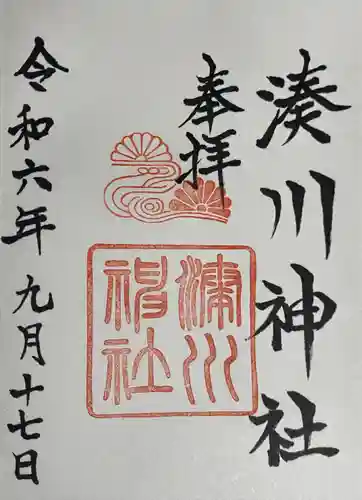 湊川神社
奉拝
湊川
神社
令和六年九月十七日